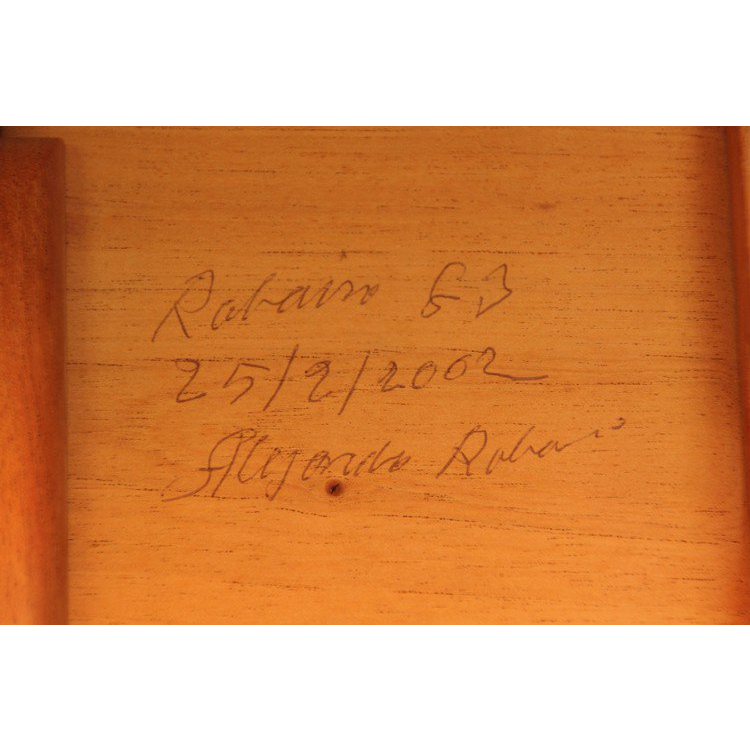 Robaina 63
25/2/2002
Alejandro Robaina